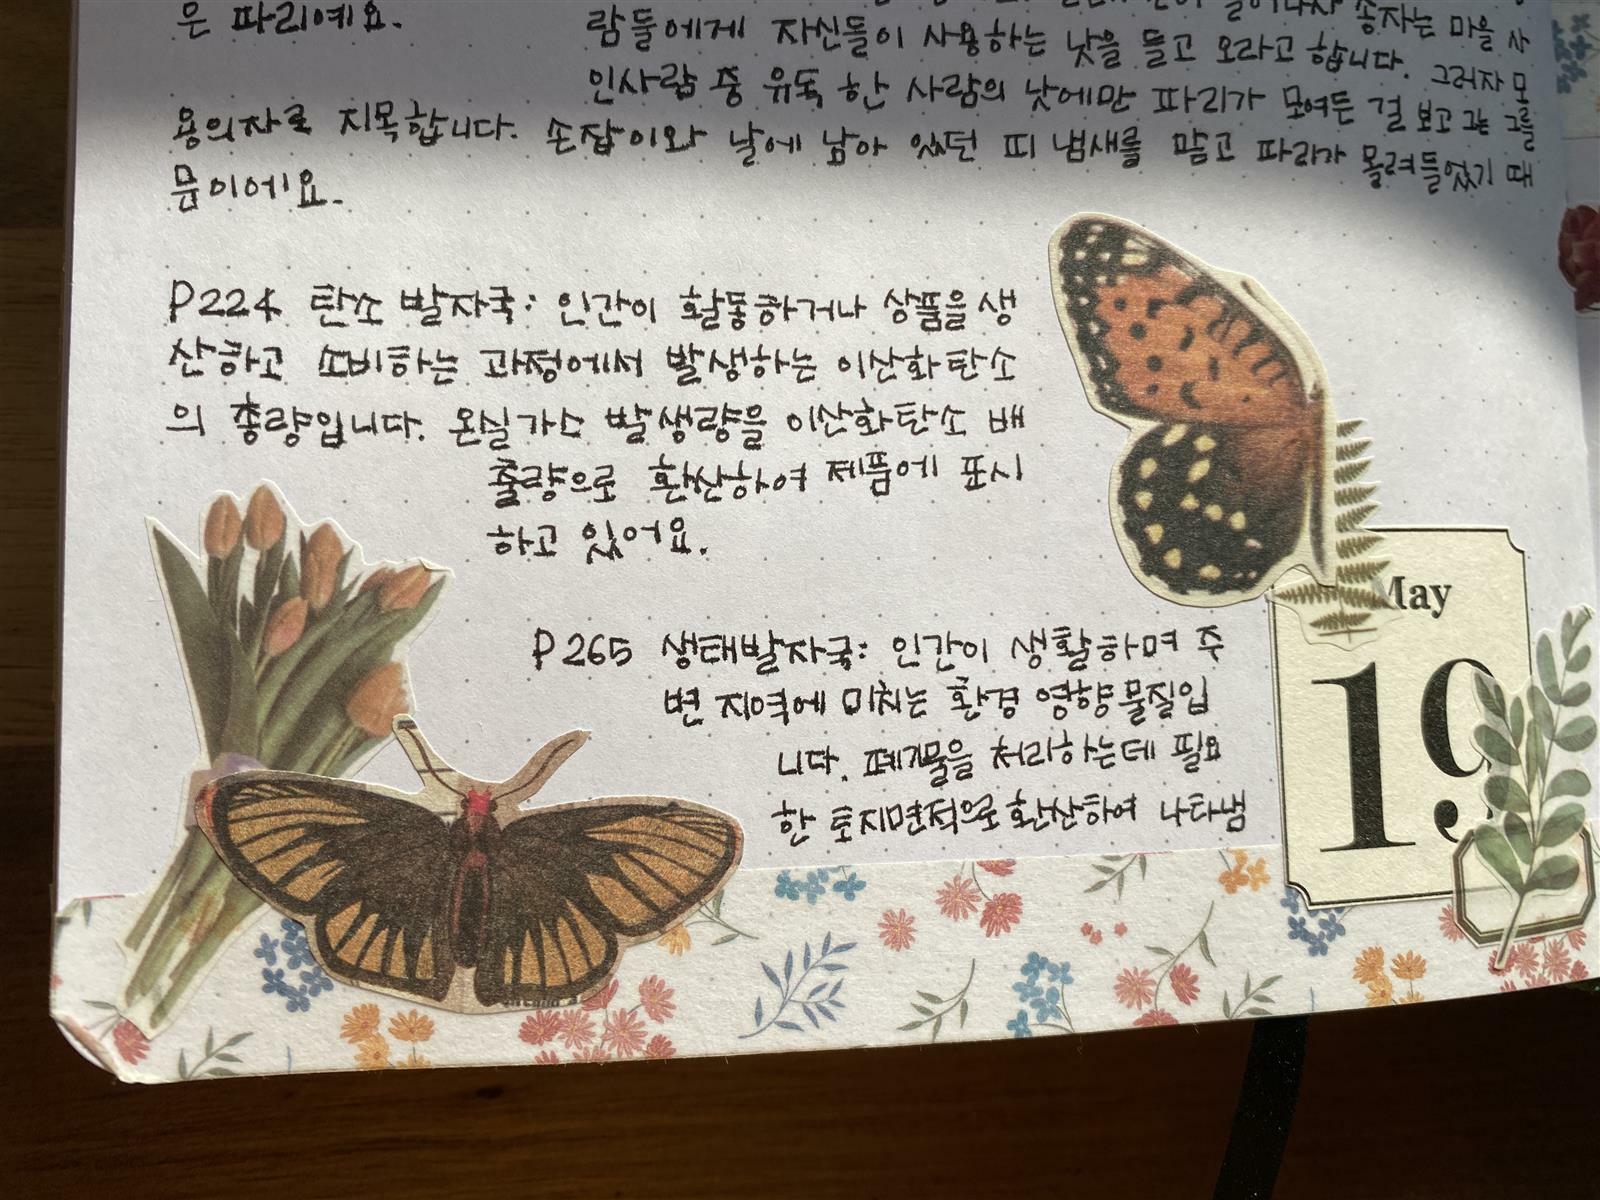 은 파리예요.
송자는 마을 사
람들에게 자신들이 사용하는 낫을 들고 오라고 합니다. 그러자 모
인사람 중 유독 한 사람의 낫에만 파리가 모여든 걸 보고 그는 그를
용의자로 지목합니다. 손잡이와 날에 남아 있던 피 냄새를 맡고 파리가 몰려들었기 때
문이에요.
P224 탄소 발자국: 인간이 활동하거나 상품을 생
산하고 소비하는 과정에서 발생하는 이산화탄소
의 총량입니다. 온실가스 발생량을 이산화탄소 배
출량으로 환산하여 제품에 표시
하고 있어요.
P265 생태발자국: 인간이 생활하며 주
변 지역에 미치는 환경 영향물질입
니다. 폐기물을 처리하는데 필요
한 토지면적으로 환산하여 나타냄
May
19